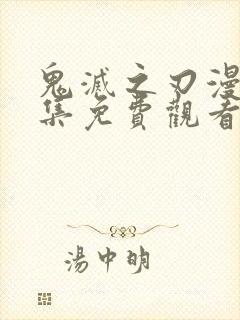 鬼滅之刃漫
集免費觀看
湯中明